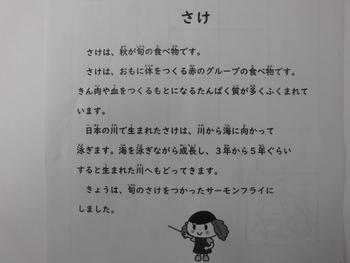 さけ
さけは、秋が旬の食べ物です。
さけは、おもに体をつくる赤のグループの食べ物です。
きん肉や血をつくるもとになるたんぱく質が多くふくまれて
います。
日本の川で生まれたさけは、川から海に向かって
泳ぎます。海を泳ぎながら成長し、3年から5年ぐらい
すると生まれた川へもどってきます。
きょうは、旬のさけをつかったサーモンフライに
しました。